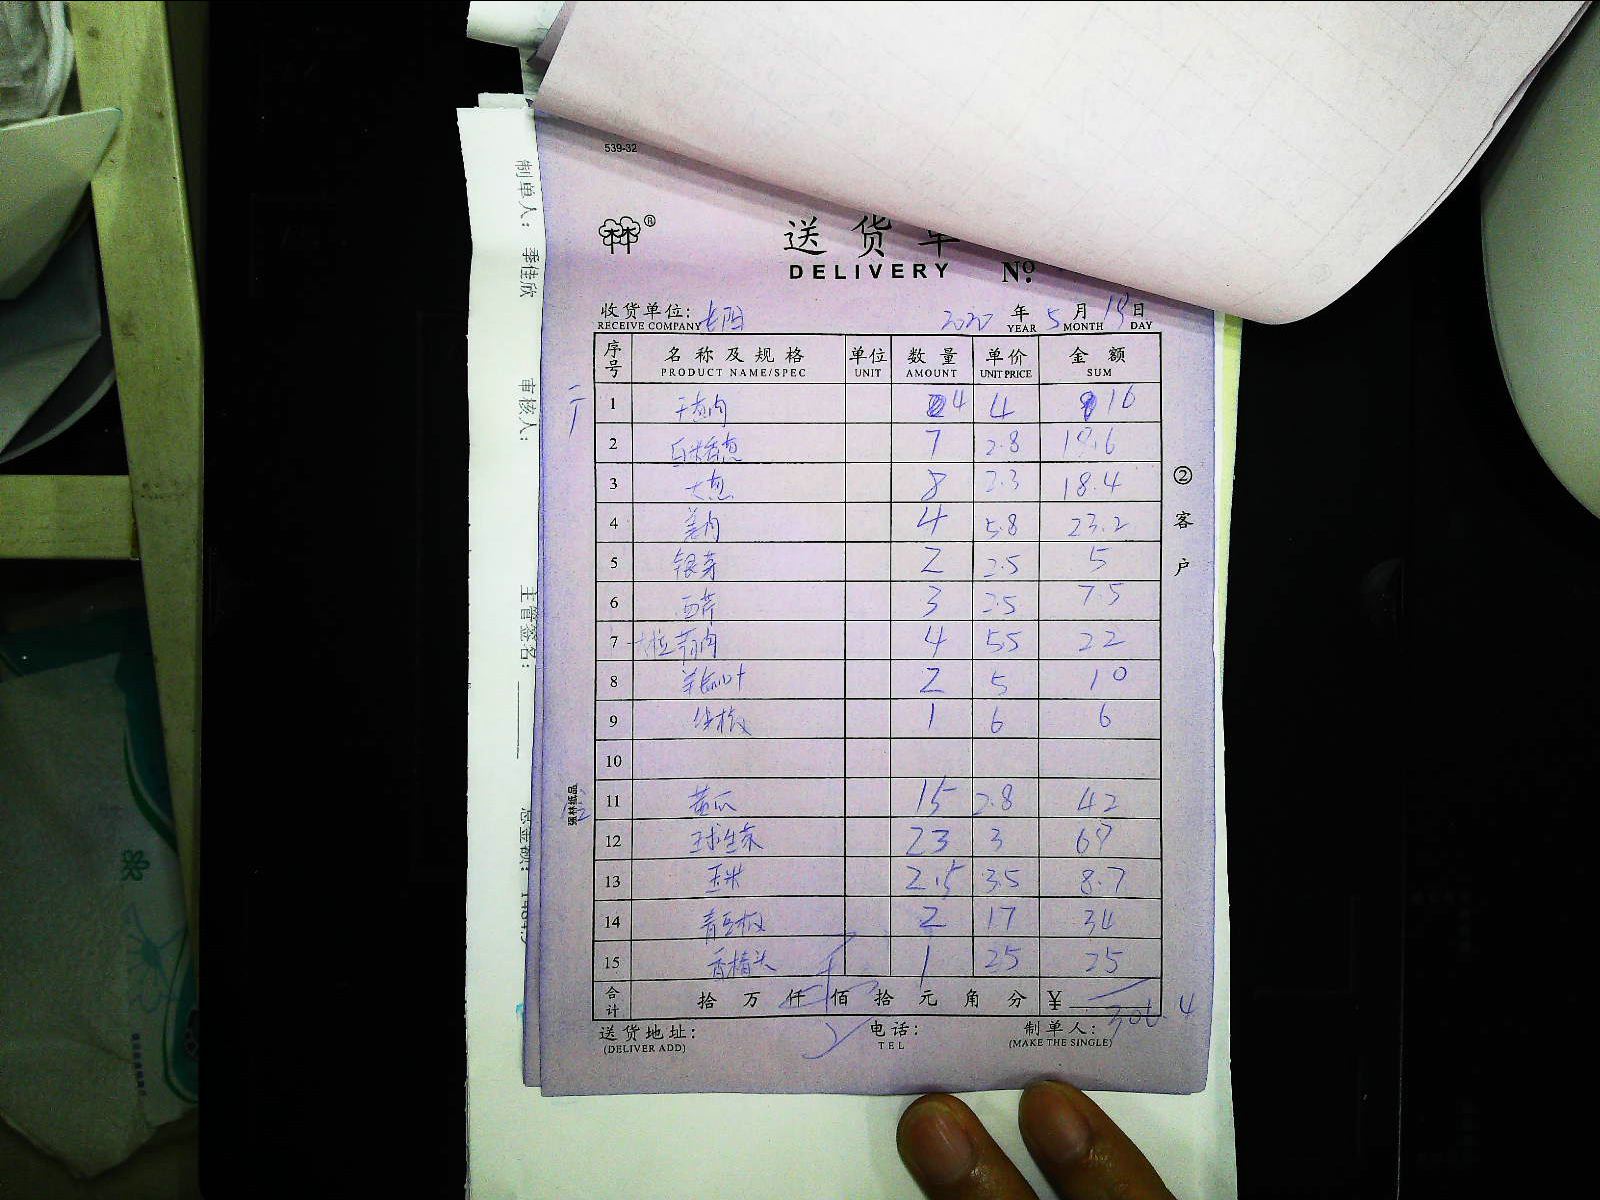 539-32
林 ®
送货单
DELIVERY No.
收货单位: RECEIVE COMPANY
2020 年 YEAR 5 月 MONTH 19 日 DAY
序号 名称及规格 PRODUCT NAME/SPEC 单位 UNIT 数量 AMOUNT 单价 UNIT PRICE 金额 SUM
1 4 4 16
2 7 2.8 19.6
3 大葱 8 2.3 18.4
4 姜肉 4 5.8 23.2
5 银芽 2 2.5 5
6 西芹 3 2.5 7.5
7 4 5.5 22
8 2 5 10
9 1 6 6
10
11 黄瓜 15 2.8 42
12 球生菜 23 3 69
13 玉米 2.5 3.5 8.7
14 2 17 34
15 1 25 25
合计 拾 万 仟 佰 拾 元 角 分 ¥ 306.4
送货地址: (DELIVER ADD) 电话: TEL 制单人: (MAKE THE SINGLE)
②客户
强林纸品
制单人: 季佳欣
审核人:
主管签名:
总金额: